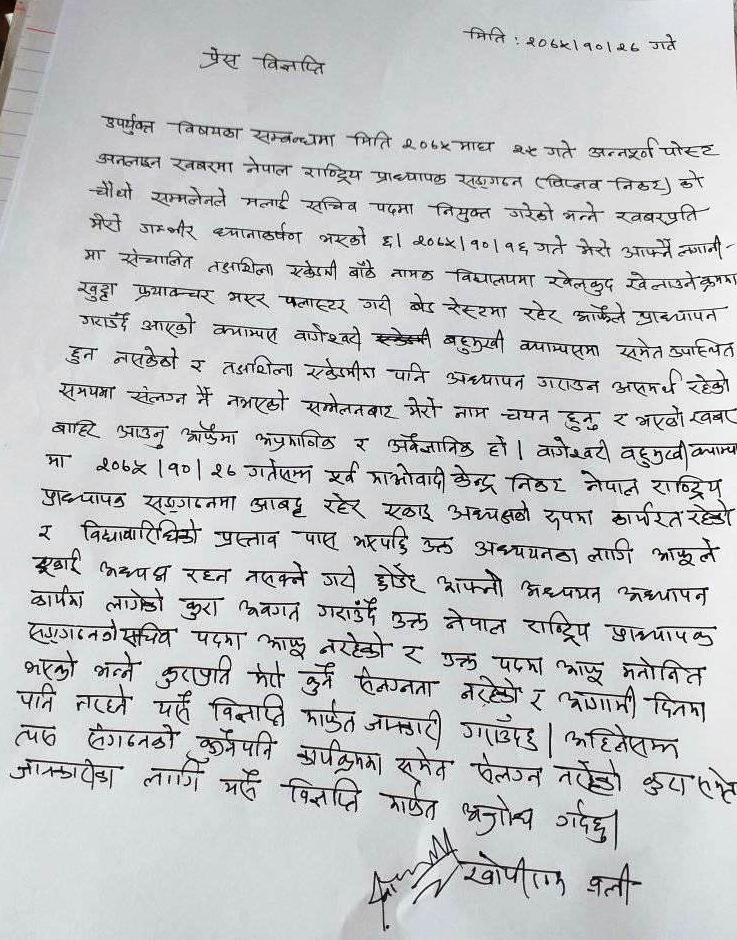 मिति : २०७५।१०।२६ गते
प्रेस विज्ञप्ति
उपर्युक्त विषयका सम्बन्धमा मिति २०७५ माघ २५ गते अन्नपूर्ण पोस्ट
अनलाइन खबरमा नेपाल राष्ट्रिय प्राध्यापक सङ्गठन (विप्लव निकट) को
चौथो सम्मलेनले मलाई सचिव पदमा नियुक्त गरेको भन्ने खबरप्रति
मेरो गम्भीर ध्यानाकर्षण भएको छ। २०७५।१०।१६ गते मेरो आफ्नै लगानी-
मा संचालित तक्षशिला एकेडमी बाँके नामक विद्यालयमा खेलकुद खेलाउने क्रममा
खुट्टा फ्र्याक्चर भएर प्लास्टर गरी बेड रेस्टमा रहेर आफूले प्राध्यापन
गराउँदै आएको क्याम्पस वागेश्वरी बहुमुखी क्याम्पसमा समेत उपस्थित
हुन नसकेको र तक्षशिला एकेडमीमा पनि अध्यापन गराउन असमर्थ रहेको
समयमा संलग्न नै नभएको सम्मेलनबाट मेरो नाम चयन हुनु र भएको खबर
बाहिर आउनु आफैमा अप्रमाणिक र अवैज्ञानिक हो। वागेश्वरी बहुमुखी क्याम्पस
मा २०७५।१०।२६ गतेसम्म पूर्व माओवादी केन्द्र निकट नेपाल राष्ट्रिय
प्राध्यापक सङ्गठनमा आबद्ध रहेर एकाइ अध्यक्षको रुपमा कार्यरत रहेको
र विद्यावारिधिको प्रस्ताव पास भएपछि उक्त अध्ययनका लागि आफूले
इकाई अध्यक्ष रहन नसक्ने गरी छोडेर आफ्नो अध्ययन अध्यापन
कार्यमा लागेको कुरा अवगत गराउँदै उक्त नेपाल राष्ट्रिय प्राध्यापक
सङ्गठनको सचिव पदमा आफू नरहेको र उक्त पदमा आफू मनोनित
भएको भन्ने कुराप्रति मेरो कुनै संलग्नता नरहेको र आगामी दिनमा
पनि नरहने यसै विज्ञप्ति मार्फत जानकारी गराउँदछु। अहिलेसम्म
त्यस संगठनको कुनैपनि कार्यक्रममा समेत संलग्न नरहेको कुरा समेत
जानकारीका लागि यसै विज्ञप्ति मार्फत अनुरोध गर्दछु।
खोपीराम वली